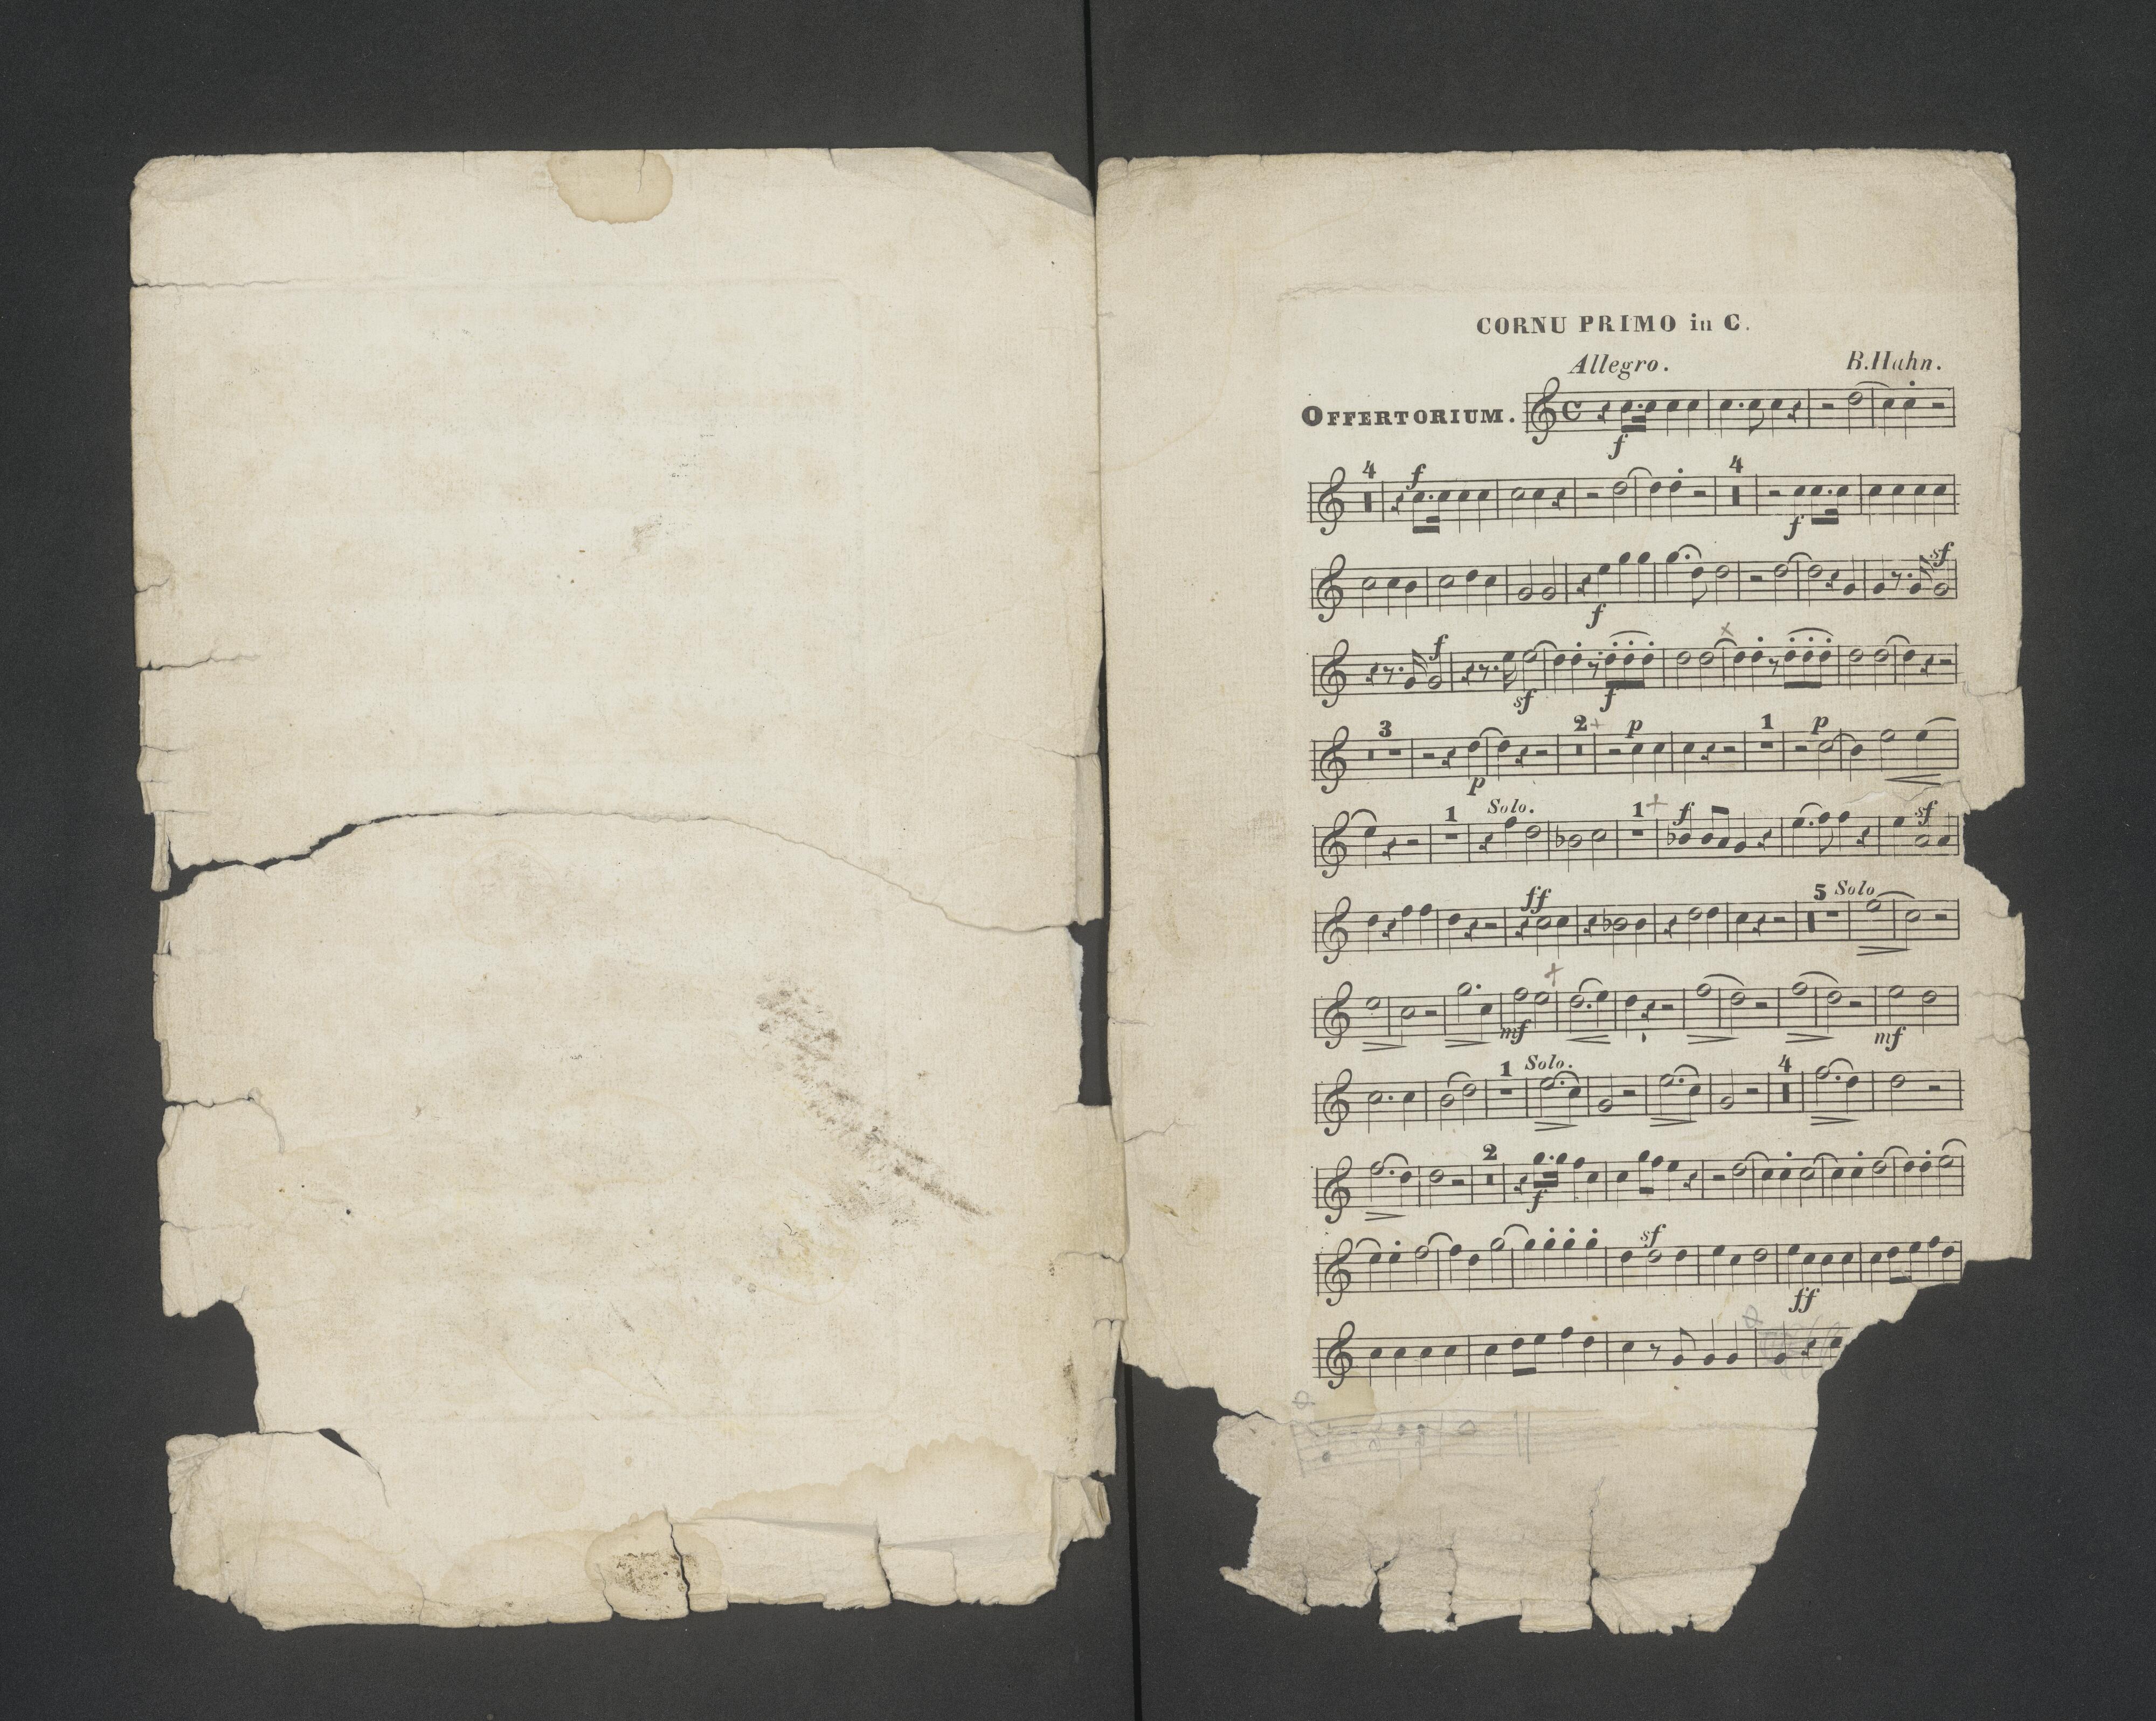 CORNU PRIMO in C.
Allegro. B. Hahn.
OFFERTORIUM.
f
4 f 4 f
f sf
f sf f
3 p 2 p 1 p
1 Solo. 1 f sf
ff 5 Solo
mf mf
1 Solo. 4
2 f
sf ff